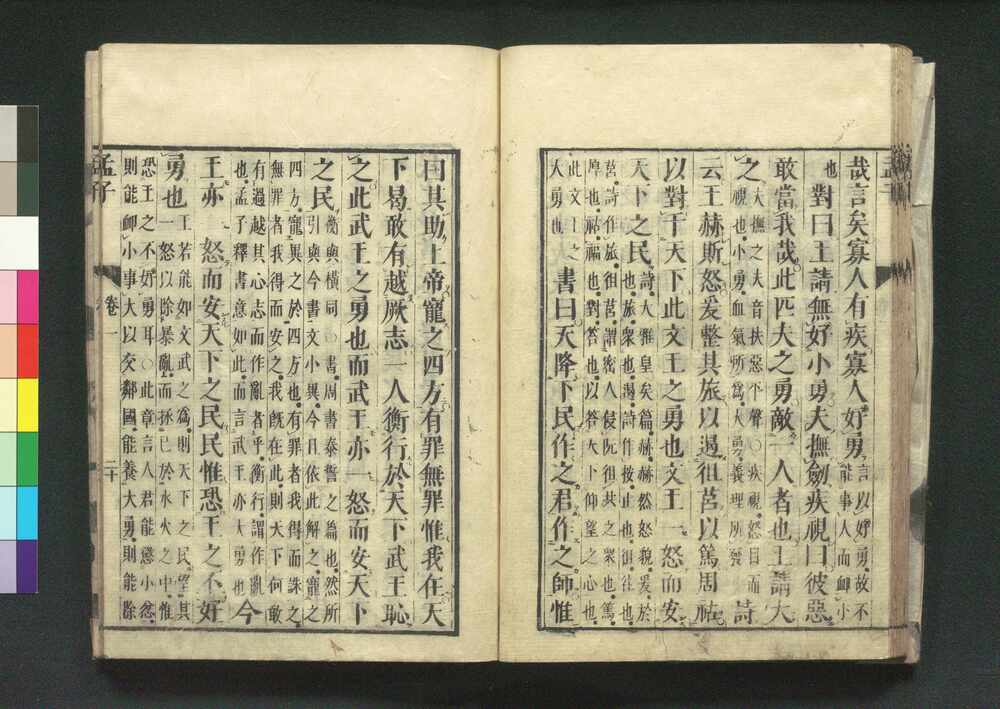 哉言矣寡人有疾寡人好勇
言以好勇故不
能事大而䘏小
也
對曰王請無好小勇夫撫劒疾視曰彼惡
敢當我哉此匹夫之勇敵一人者也王請大
之
夫撫之夫音扶惡平聲○疾視怒目而
視也小勇血氣所爲大勇義理所發
詩
云王赫斯怒爰整其旅以遏徂莒以篤周祜
以對于天下此文王之勇也文王一怒而安
天下之民
詩大雅皇矣篇赫赫然怒貌爰於
也旅衆也遏詩作按止也徂往也
莒詩作旅徂莒謂密人侵阮徂共之衆也篤
厚也祜福也對答也以答天下仰望之心也
此文王之
大勇也
書曰天降下民作之君作之師惟
曰其助上帝寵之四方有罪無罪惟我在天
下曷敢有越厥志一人衡行於天下武王恥
之此武王之勇也而武王亦一怒而安天下
之民
衡與橫同○書周書泰誓之篇也然所
引與今書文小異今且依此解之寵之
四方寵異之於四方也有罪者我得而誅之
無罪者我得而安之我旣在此則天下何敢
有過越其心志而作亂者乎衡行謂作亂
也孟子釋書意如此而言武王亦大勇也
今
王亦一怒而安天下之民民惟恐王之不好
勇也
王若能如文武之爲則天下之民望其
一怒以除暴亂而拯己於水火之中惟
恐王之不好勇耳○此章言人君能懲小忿
則能䘏小事大以交鄰國能養大勇則能除
孟子
卷一
二十